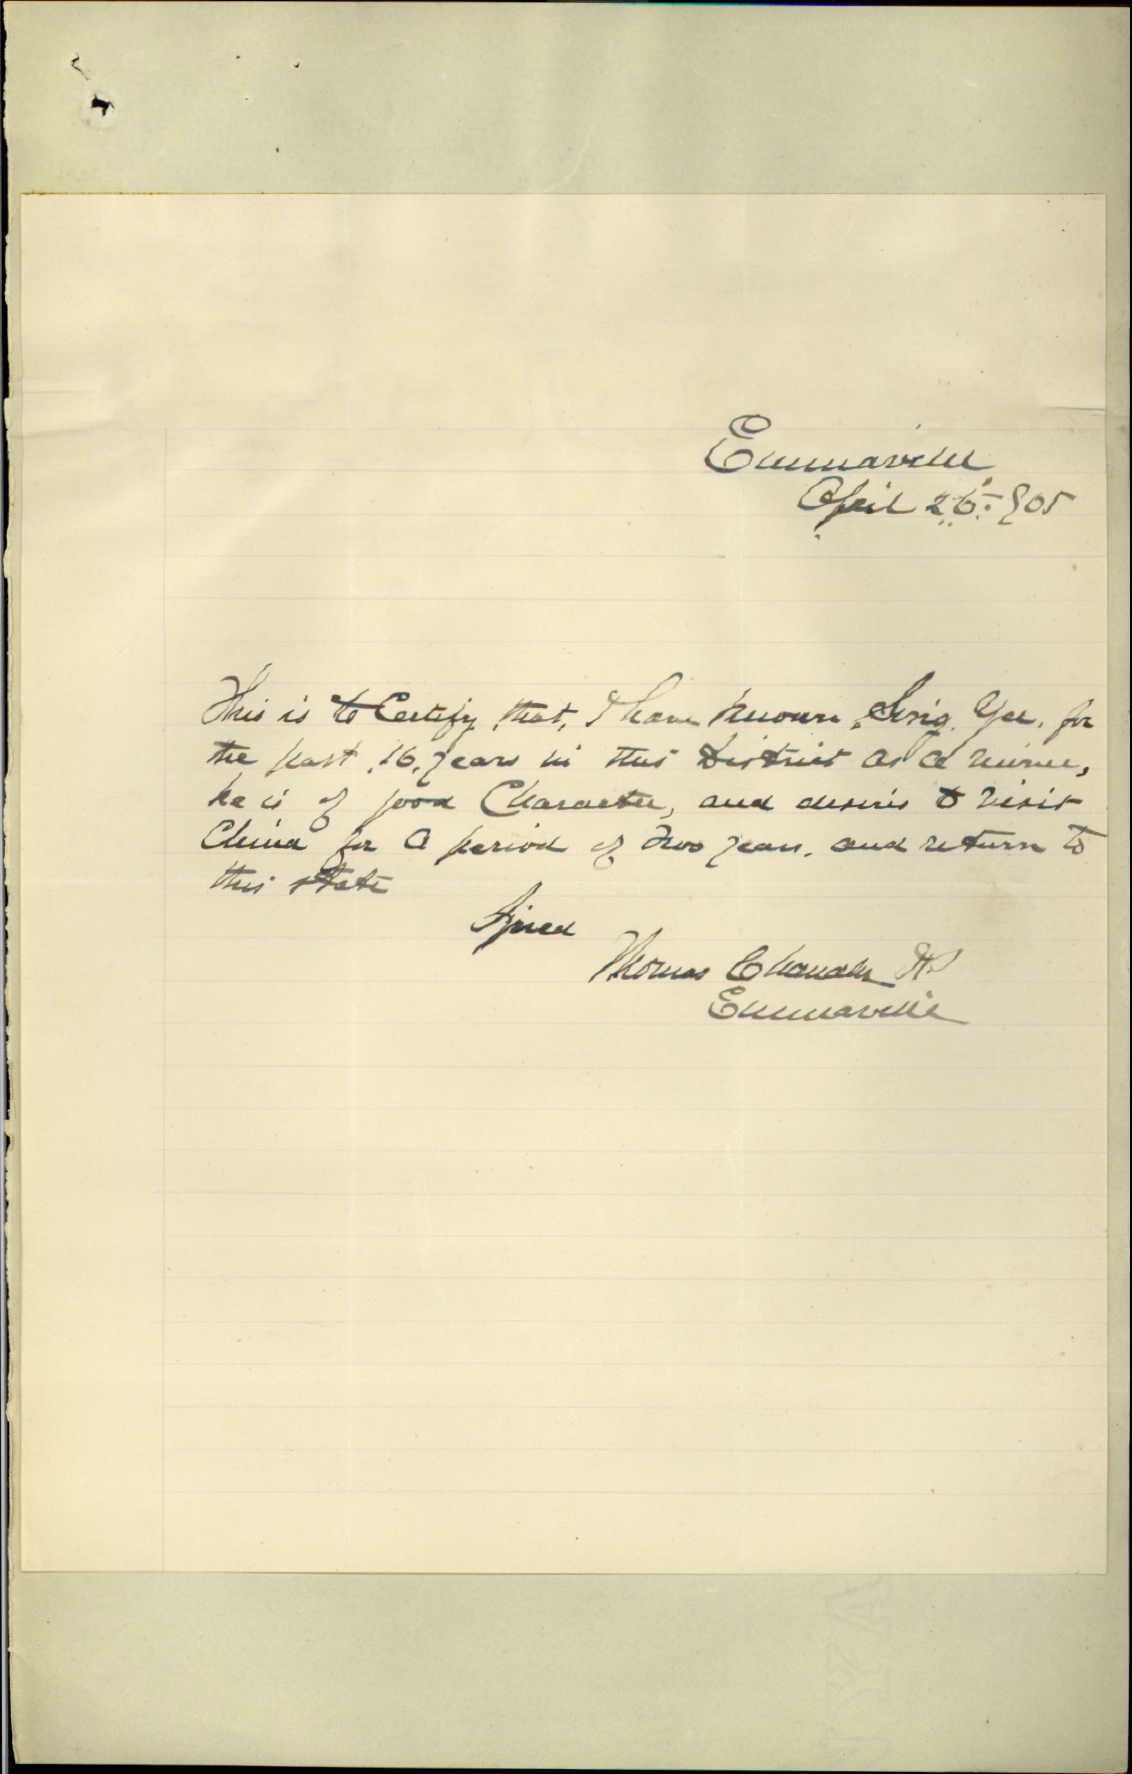 Emmaville
April 26th 905
This is to Certify that, I have known, Sing Yee, for
the past 16, years in this District as a miner,
he is of good Character, and desires to visit
China for a period of Two years. and return to
this state
Signed
Thomas Chandler JP
Emmaville